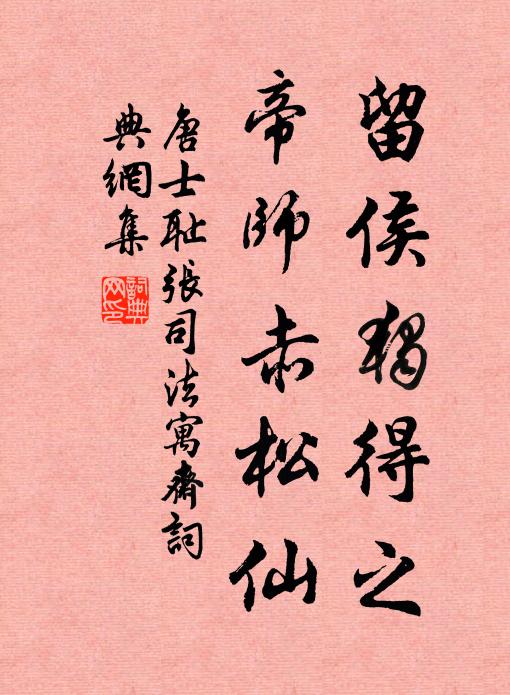 留侯獨得之
帝師赤松仙
唐士耻張司法寓齋詞
典網集
詞典網印